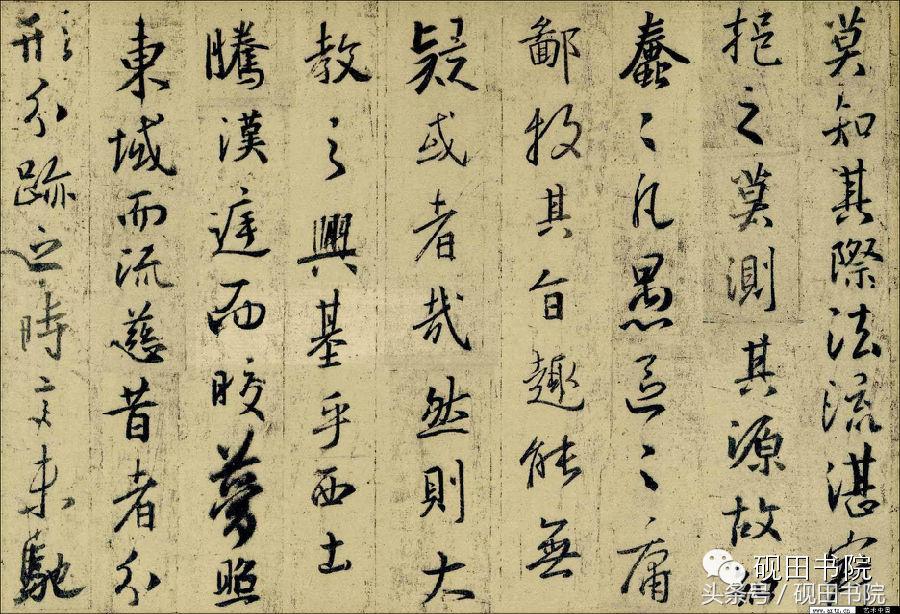 莫知其際法流湛寂
挹之莫測其源故知
蠢〻凡愚區〻庸
鄙投其旨趣能無
疑或者哉然則大
教之興基乎西土
騰漢庭而皎夢照
東域而流慈昔者分
形分跡之時言未馳
砚田书院
头条号 / 砚田书院
www.artx.cn 艺术中国